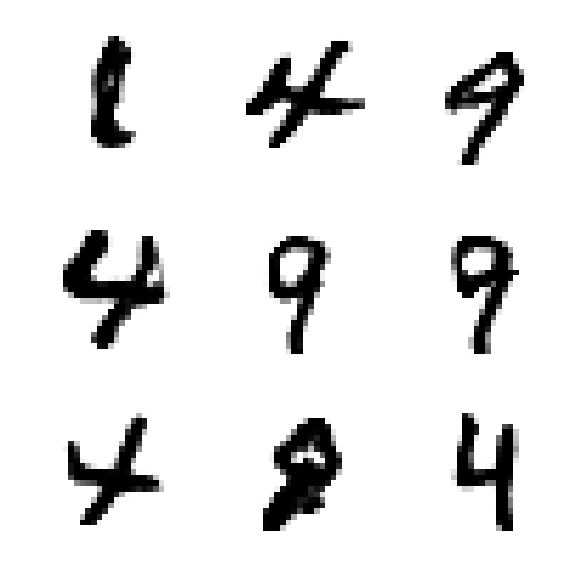 1 4 9
4 9 9
4 8 4